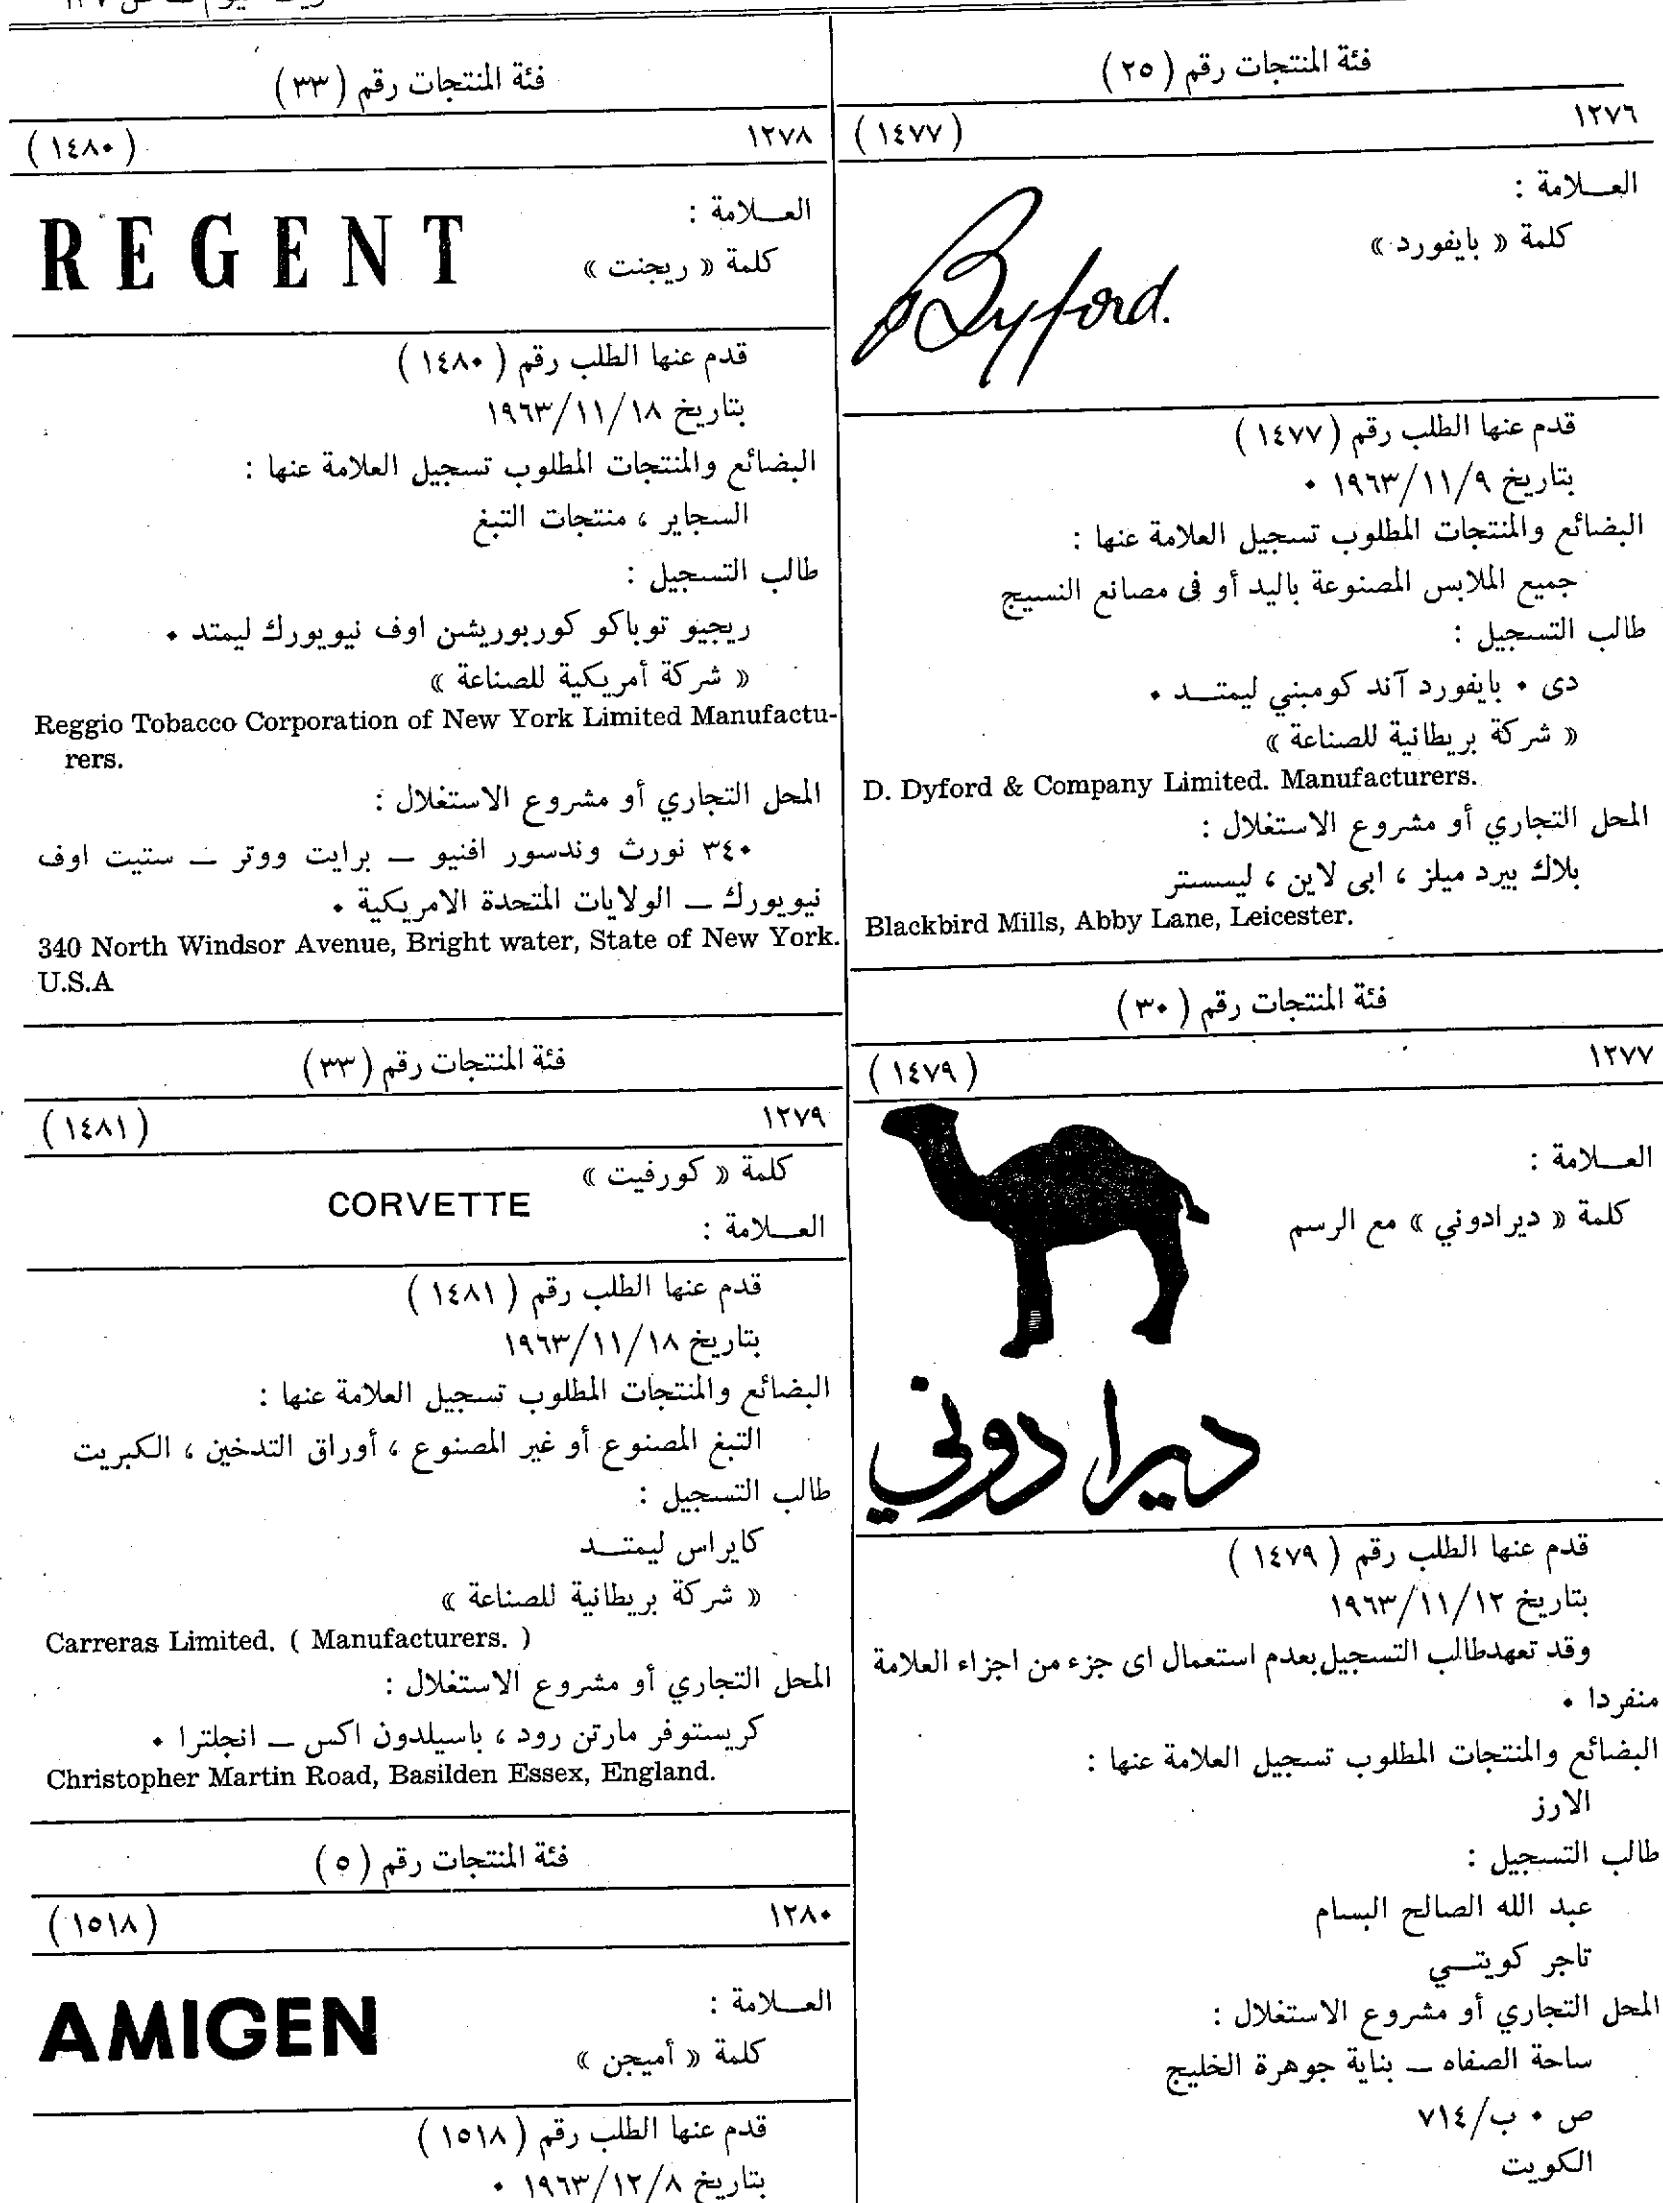 فئة المنتجات رقم ( ٢٥ )
١٢٧٦ ( ١٤٧٧ )
العـــلامة :
كلمة « بايفورد »
Byford.
قدم عنها الطلب رقم ( ١٤٧٧ )
بتاريخ ١٩٦٣/١١/٩ ٠
البضائع والمنتجات المطلوب تسجيل العلامة عنها :
جميع الملابس المصنوعة باليد أو فى مصانع النسيج
طالب التسجيل :
دى ٠ بايفورد آند كومبني ليمتـــد ٠
« شركة بريطانية للصناعة »
D. Dyford & Company Limited. Manufacturers.
المحل التجاري أو مشروع الاستغلال :
بلاك بيرد ميلز ، ابى لاين ، ليسستر
Blackbird Mills, Abby Lane, Leicester.
فئة المنتجات رقم ( ٣٠ )
١٢٧٧ ( ١٤٧٩ )
العـــلامة :
كلمة « ديرادوني » مع الرسم
ديرادوني
قدم عنها الطلب رقم ( ١٤٧٩ )
بتاريخ ١٩٦٣/١١/١٢
وقد تعهدطالب التسجيل بعدم استعمال اى جزء من اجزاء العلامة
منفردا ٠
البضائع والمنتجات المطلوب تسجيل العلامة عنها :
الارز
طالب التسجيل :
عبد الله الصالح البسام
تاجر كويتـــي
المحل التجاري أو مشروع الاستغلال :
ساحة الصفاه ــ بناية جوهرة الخليج
ص ٠ ب/٧١٤
الكويت
فئة المنتجات رقم ( ٣٣ )
١٢٧٨ ( ١٤٨٠ )
العـــلامة :
كلمة « ريجنت »
REGENT
قدم عنها الطلب رقم ( ١٤٨٠ )
بتاريخ ١٩٦٣/١١/١٨
البضائع والمنتجات المطلوب تسجيل العلامة عنها :
السجاير ، منتجات التبغ
طالب التسجيل :
ريجيو توباكو كوربوريشن اوف نيويورك ليمتد ٠
« شركة أمريكية للصناعة »
Reggio Tobacco Corporation of New York Limited Manufactu-
rers.
المحل التجاري أو مشروع الاستغلال :
٣٤٠ نورث وندسور افنيو ــ برايت ووتر ــ ستيت اوف
نيويورك ــ الولايات المتحدة الامريكية ٠
340 North Windsor Avenue, Bright water, State of New York.
U.S.A
فئة المنتجات رقم ( ٣٣ )
١٢٧٩ ( ١٤٨١ )
كلمة « كورفيت »
CORVETTE
العـــلامة :
قدم عنها الطلب رقم ( ١٤٨١ )
بتاريخ ١٩٦٣/١١/١٨
البضائع والمنتجات المطلوب تسجيل العلامة عنها :
التبغ المصنوع أو غير المصنوع ، أوراق التدخين ، الكبريت
طالب التسجيل :
كايراس ليمتـــد
« شركة بريطانية للصناعة »
Carreras Limited. ( Manufacturers. )
المحل التجاري أو مشروع الاستغلال :
كريستوفر مارتن رود ، باسيلدون اكس ــ انجلترا ٠
Christopher Martin Road, Basilden Essex, England.
فئة المنتجات رقم ( ٥ )
١٢٨٠ ( ١٥١٨ )
العـــلامة :
كلمة « أميجن »
AMIGEN
قدم عنها الطلب رقم ( ١٥١٨ )
بتاريخ ١٩٦٣/١٢/٨ ٠